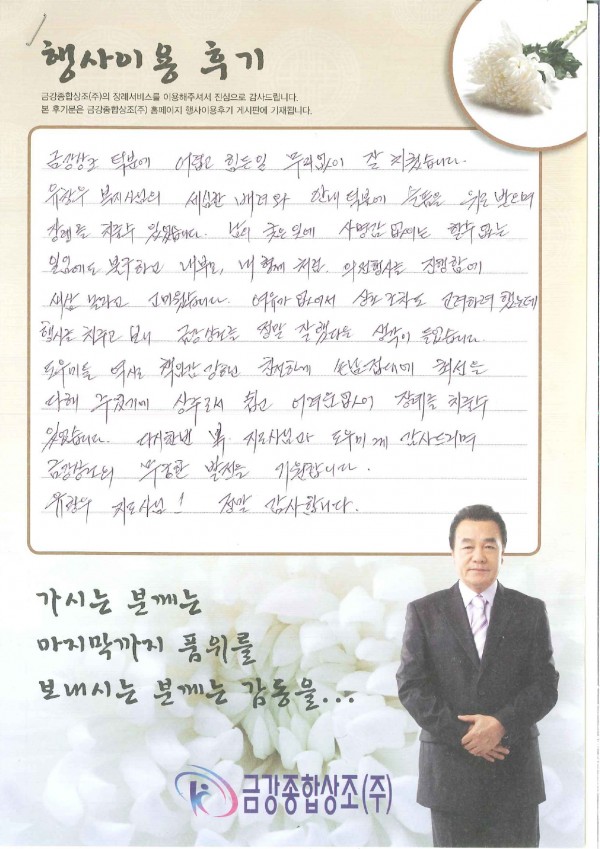 행사이용 후기
금강종합상조(주)의 장례서비스를 이용해주셔서 진심으로 감사드립니다.
본 후기분은 금강종합상조(주) 홈페이지 행사이용후기 게시판에 기재됩니다.
금강상조 덕분에 어렵고 힘든일 무리없이 잘 치렀습니다.
유광우 복지사님의 세심한 배려와 안내 덕분에 슬픔을 위로 받으며
장례를 치를수 있었습니다. 남의 궂은일에 사명감 없이는 할수 없는
일임에도 불구하고 내부모, 내 형제 처럼 의전행사를 진행함에
새삼 놀라고 고마웠습니다. 여유가 없어서 상조 조차도 고려하려 했는데
행사를 치루고 보니 금강상조를 정말 잘했다는 생각이 들었습니다
도우미들 역시도 책임감 강하고 친절하게 손님접대에 최선을
다해 주셨기에 상주로서 쉽고 어려움없이 장례를 치를수
있었습니다. 다시한번 지도사님과 도우미께 감사드리며
금강상조의 무궁한 발전을 기원합니다.
유광우 지도사님! 정말 감사합니다.
가시는 분께는
마지막까지 품위를
보내시는 분께는 감동을...
금강종합상조(주)